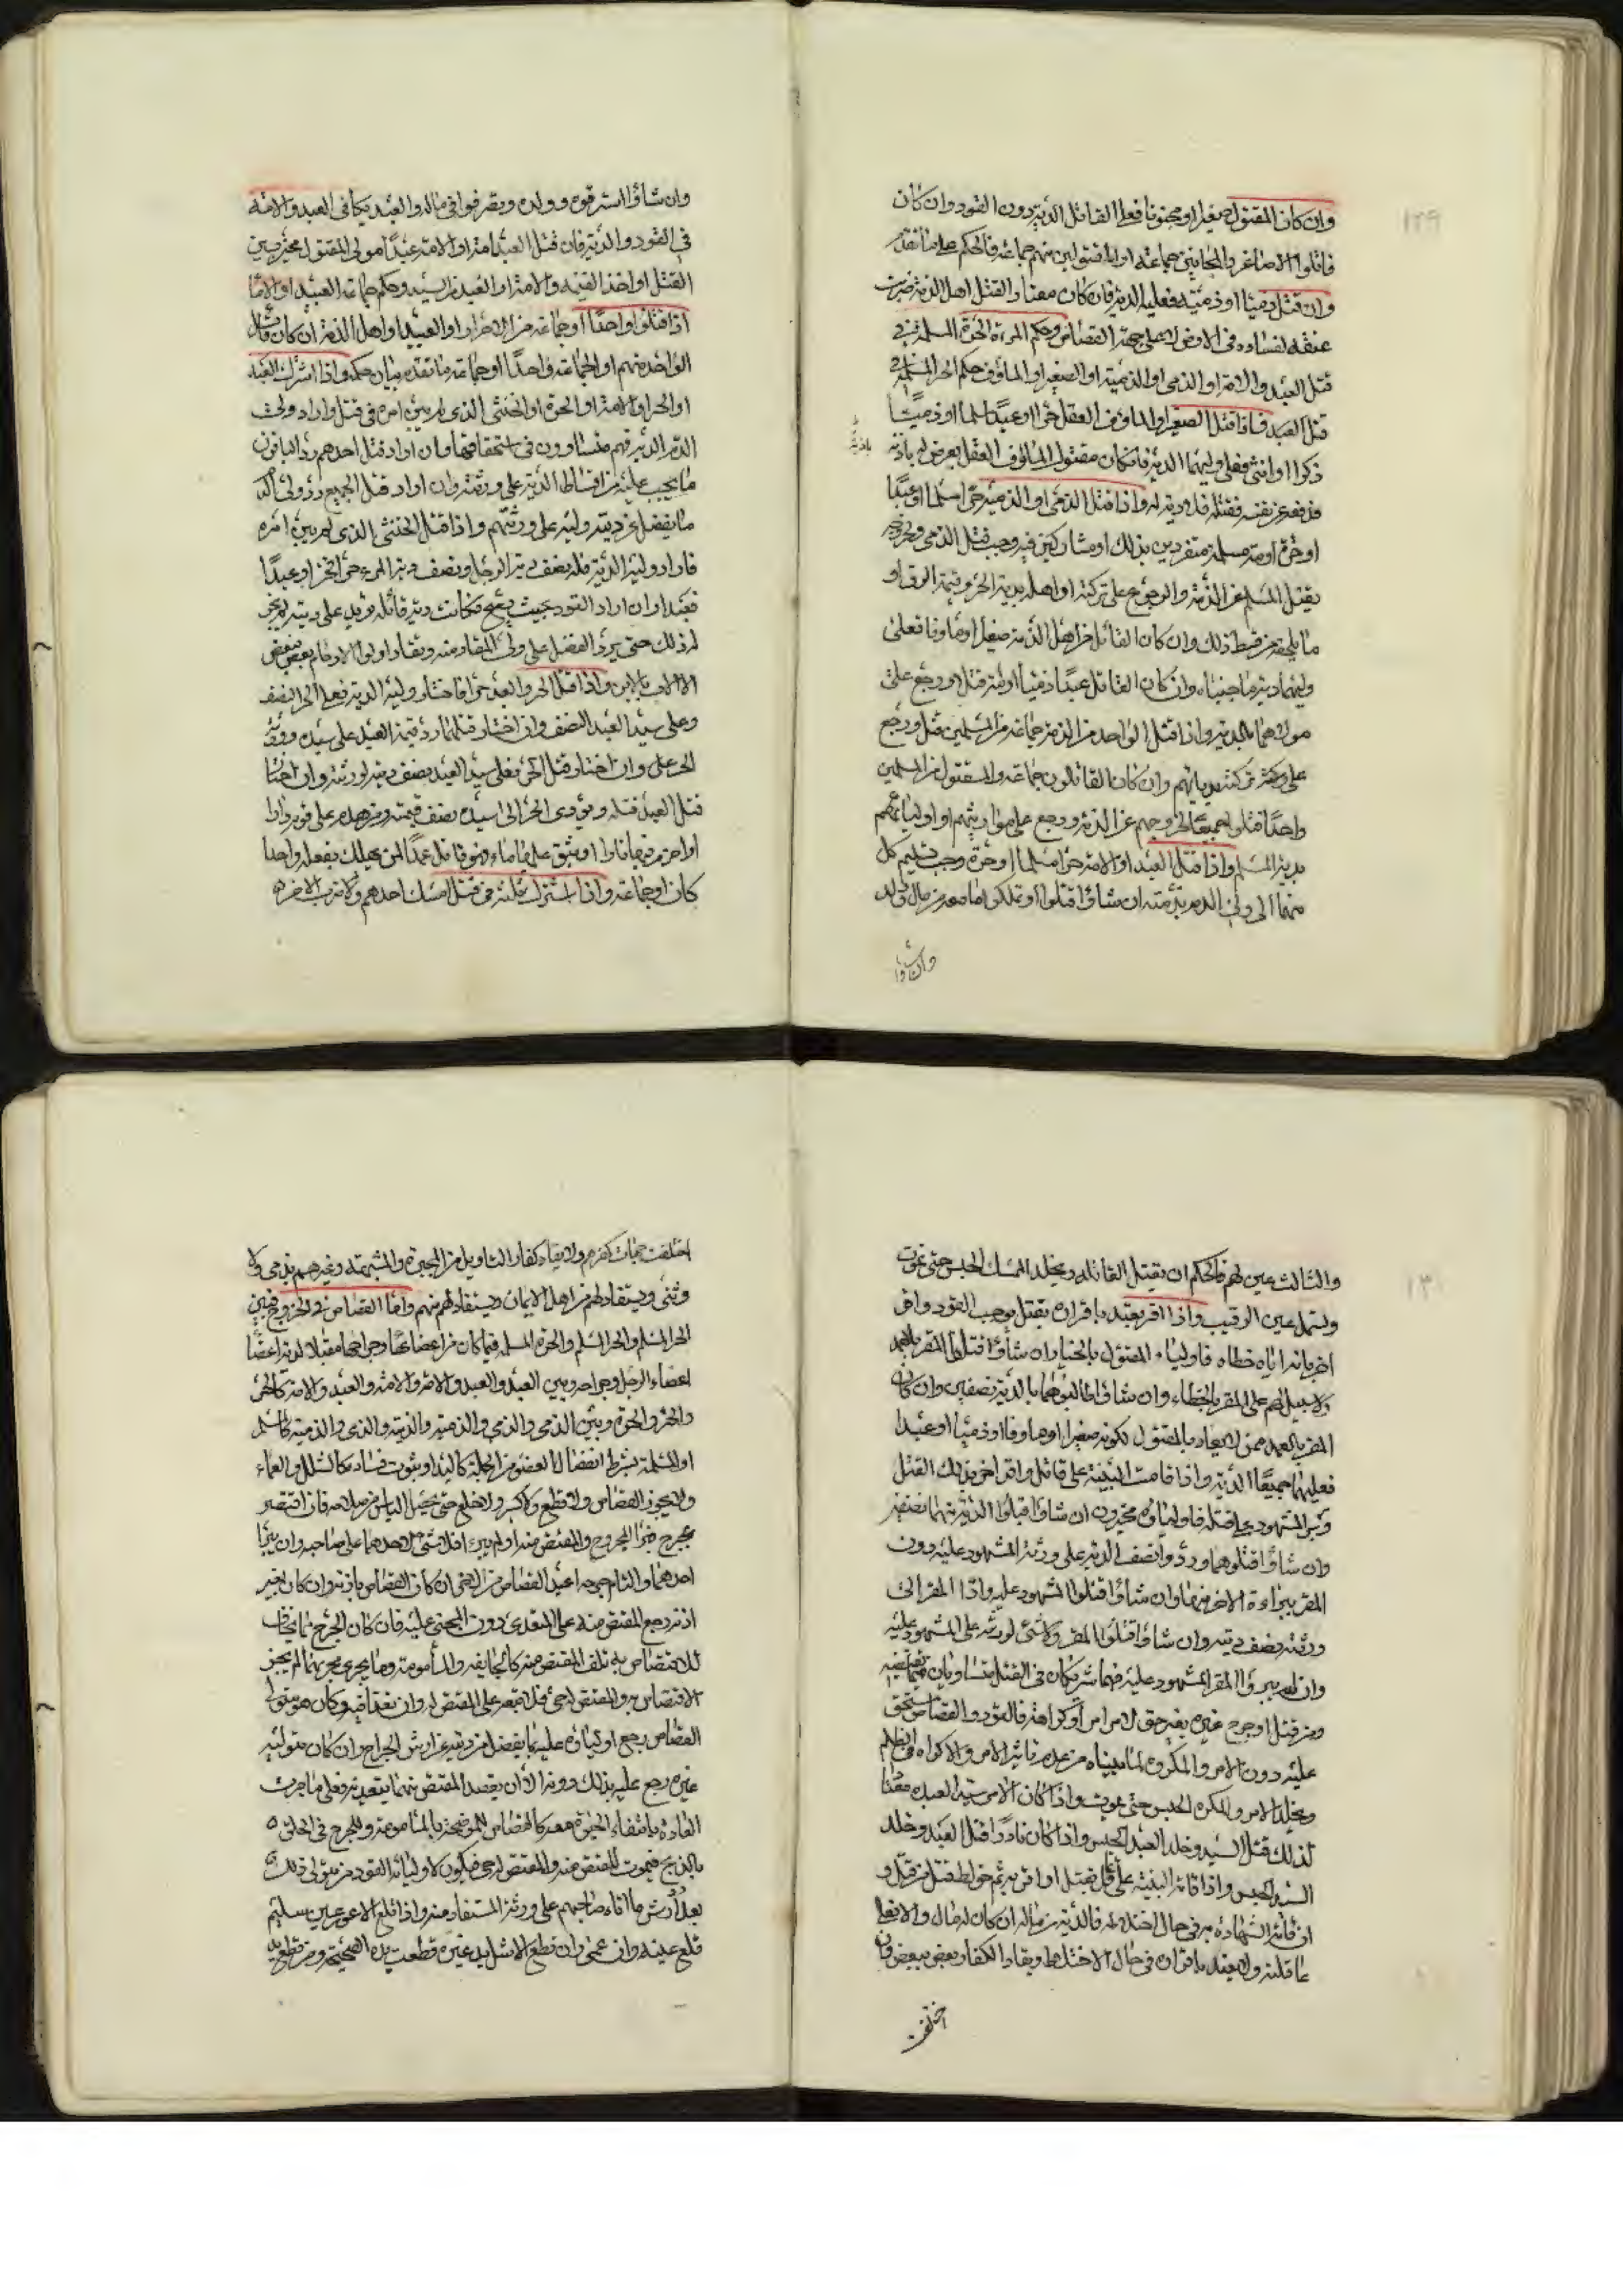 ١٢٩
وان كان المقتول صغيرا او مجنونا فعلى القاتل الدية دون القود وان كان
قاتلوا الاصاغر والمجانين جماعة او المقتولين منهم جماعة فالحكم على ما تقدم
وان قتل ذميا او ذمية فعليه الدية فان كان معتادا لقتل اهل الذمة ضربت
عنقه لفساده في الارض لا على جهة القصاص وحكم المرءة الحرة المسلمة في
قتل العبد والامة او الذمي او الذمية او الصغير او الماؤف حكم الحر المسلم في
قتل العبد فاذا قتل الصغير او الماؤف العقل حرا او عبدا مسلما او ذميا
ذكرا او انثى فعلى وليهما الدية فان كان مقتول الماؤف العقل يعرض له باذية
باذية
فدفعه عن نفسه فقتله فلا دية له واذا قتل الذمي او الذمية حرا مسلما او عبدا
او حرة او امة مسلمة منفردين بذلك او مشاركين فيه وجب قتل الذمي
بقتل المسلم عن الذمة والرجوع على تركته او اهله بدية الحر وقيمة الرق او
ما يلحقه من قسط ذلك وان كان القاتل من اهل الذمة صغيرا او ماوفا فعلى
وليهما دية ما جنياه وان كان القاتل عبدا ذميا او امة قتلا ورجع على
مولاهما بالدية واذا قتل الواحد من الذمة جماعة من المسلمين قتل ورجع
على تركته بدياتهم وان كان القاتلون جماعة والمقتول من المسلمين
واحدا قتلوا جميعا لخروجهم عن الذمة ورجع على مواريثهم او اوليائهم
بدية المسلم واذا قتل العبد او الامة حرا مسلما او حرة وجب تسليم كل
منهما الى ولي الدم برمته ان شاؤا قتلوا وتملكوا ما معه من مال وولد
وان شاؤا
وان شاؤا استرقوه وولده وتصرفوا في ماله والعبد يكافي العبد والامة
في القود والدية فان قتل العبد امة او الامة عبدا فمولى المقتول مخير بين
القتل او اخذ القيمة والامة او العبد من السيد وحكم جماعة العبيد او الاماء
اذا قتلوا واحدا او جماعة من الاحرار او العبيد او اهل الذمة ان كان قاتل
الواحد منهم او الجماعة واحدا او جماعة ما تقدم بيان حكمه واذا اشترك العبد
او الحر او الامة او الحرة او الخنثى الذي لم يبين امره في قتل واراد ولي
الدم الدية فهم متساوون في استحقاقها وان اراد قتل احدهم رد الباقون
ما يجب عليه من اقساط الدية على ورثته وان اراد قتل الجميع رد ولي الدم
ما يفضل عن دية وليه على ورثتهم واذا قتل الخنثى الذي لم يبين امره
فاراد وليه الدية فله نصف دية الرجل ونصف دية المرءة
فعبدا وان اراد القود بحيث يصح فكانت دية قاتله تزيد على ديته لم يجز
له ذلك حتى يرد الفضل على ولي المقاد منه ويقاد اولوا الارحام بعض ببعض
الا الاب بالابن واذا قتل الحر والعبد حرا فاختار وليه الدية فعلى الحر النصف
وعلى سيد العبد النصف وان اختار قتلهما رد قيمة العبد على سيده وورثة
الحر وان اختار قتل الحر فعلى سيد العبد نصف ديته لورثته وان اختار
قتل العبد قتله ويؤدي الحر الى سيده نصف قيمته
كان او جماعة واذا اشترك ثلثة في قتل امسك احدهم وضرب الاخر
١٣٠
والثالث عين لهم فالحكم ان يقتل القاتل ويخلد الممسك الحبس حتى يموت
وتسمل عين الرقيب واذا اقر بعتد باقراره بقتل يوجب القود واقر
اخر بانه اياه خطاء فاولياء المقتول بالخيار ان شاؤا قتلوا المقر بالعمد
ولا سبيل لهم على المقر بالخطاء وان شاؤا طالبوهما بالدية نصفين وان كان
المقر بالعمد ممن لا يقاد بالمقتول لكونه صغيرا او ماوفا او ذميا او عبدا
فعليهما جميعا الدية واذا قامت البينة على قاتل واقر اخر بذلك القتل
وبرء المشهود على قتله فاولياؤه مخيرون ان شاؤا قبلوا الدية منهما نصفين
وان شاؤا قتلوهما وردوا نصف الدية على ورثة المشهود عليه دون
المقر ببراءة الاخر منهما وان شاؤا قتلوا المشهود عليه وادا المقر الى
ورثته نصف ديته وان شاؤا قتلوا المقر ولا شيء لورثته على المشهود عليه
وان لم يبرء المقر المشهود عليه فهما شريكان في القتل متساويان
ومن قتل او جرح غيره بغير حق لامر آمر او كراهة فالقود والقصاص مستحق
عليه دون الامر والمكره لما بيناه من عدم تاثير الامر والاكراه في الظلم
ويخلد الامر والمكره الحبس حتى يموت واذا كان الامر سيد العبد معتادا
لذلك قتل السيد وخلد العبد الحبس واذا كان نادرا قتل العبد وخلد
السيد الحبس واذا قامت البينة على قاتل بقتل او اقر به ثم خولط قتل
ان قامت الشهادة به في حال اختلاطه فالدية من ماله ان كان له مال والا فعلى
عاقلته ولا يعتد باقراره في حال الاختلاط ويقاد الكفار بعض ببعض وان
اختلفت
اختلفت جهات كفرهم ولا يقاد كفار التاويل من المجبرة والمشبهة وغيرهم بذمي ولا
وثني ويستقاد لهم من اهل الايمان ويستقاد لهم منهم واما القصاص في الجروح فبين
الحر المسلم والحر المسلم والحرة المسلمة فيما كان من اعضائها وجراحها مقابلا لدية اعضاء
اعضاء الرجل وجراحه وبين العبد والعبد والامة والامة والعبد والامة كالحر
والحر والحرة وبين الذمي والذمي والذمية والذمية والذمي والذمية كالمسلم
او المسلمة بشرط انفصال العضو من الجملة كاليد او ثبوت فساده كالشلل والعماء
ولا يجوز القصاص ولا قطع ولا كسر ولا خلع حتى يحصل الياس من صلاحه فان اقتص
بجرح فبرأ المجروح والمقتص منه او لم يبرءا فلا شيء لاحدهما على صاحبه وان برأ
احدهما والتام جرحه اعيد القصاص من الاخر ان كان القصاص باذنه وان كان بغير
اذنه رجع المقتص منه على المتعدي دون المجني عليه فان كان الجرح مما يخاف
للاقتصاص به تلف المقتص منه كالجائفة والمأمومة وما يجري مجريهما لم يجز
القصاص رجع اولياؤه عليه بما يفضل من ديته عن ارش الجراح وان كان متوليه
غيره رجع عليه بذلك دونه الا ان يقصد المقتص منهما يتعديه فعلى ما جرت
العادة بانتفاء الحيوة معه كالقصاص للموضحة بالمامومة وللجرح في الحلق
بالذبح فيموت المقتص منه والمقتص له حي فيكون لاوليائه القود ممن تولى ذلك
بعد ارش ما افاء صاحبهم على ورثة المستقاد منه واذا قلع الاعور عين سليم
قلع عينه وان عمي وان قطع الاشل يد غيره قطعت يده الصحيحة ومن قطع يد